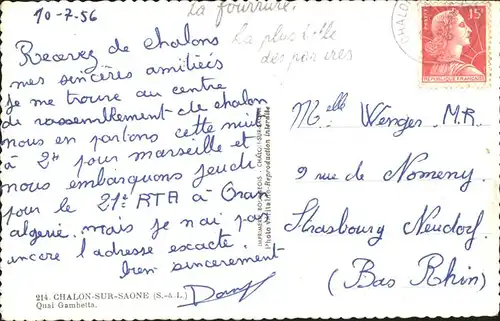 10-7-56
la fourrure
la plus belle
des parures
CHALON
15F
POSTES
REPUBLIQUE FRANCAISE
Recevez de chalons
mes sincères amitiés
je me trouve au centre
de rassemblement de chalon
nous en partons cette nuit
à 2H pour marseille et
nous embarquons jeudi
pour le 21e RTA à Oran
algerie. mais je n'ai pas
encore l'adresse exacte.
bien sincerement
214. CHALON-SUR-SAONE (S.-&-L.)
Quai Gambetta.
Photo Véritable-Reproduction Interdite
Melle Wenger M.R.
9 rue de Nomeny
Strasbourg Neudorf
(Bas Rhin)